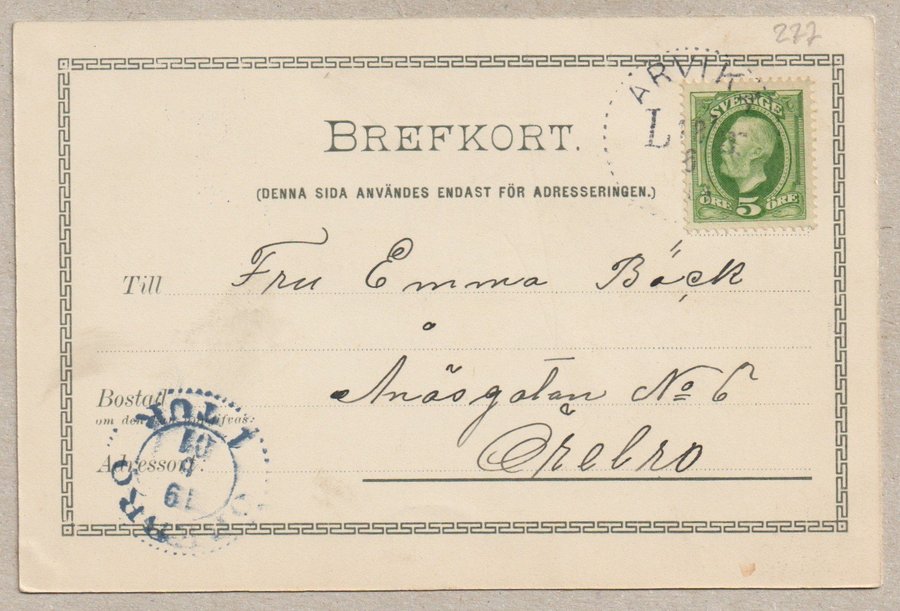 277
ARVIKA
L
SVERIGE
ÖRE 5 ÖRE
BREFKORT.
(DENNA SIDA ANVÄNDES ENDAST FÖR ADRESSERINGEN.)
Till Fru Emma Bäck
Bostad Ånäsgatan No 6
Adressort. Örebro
1 TUR
19